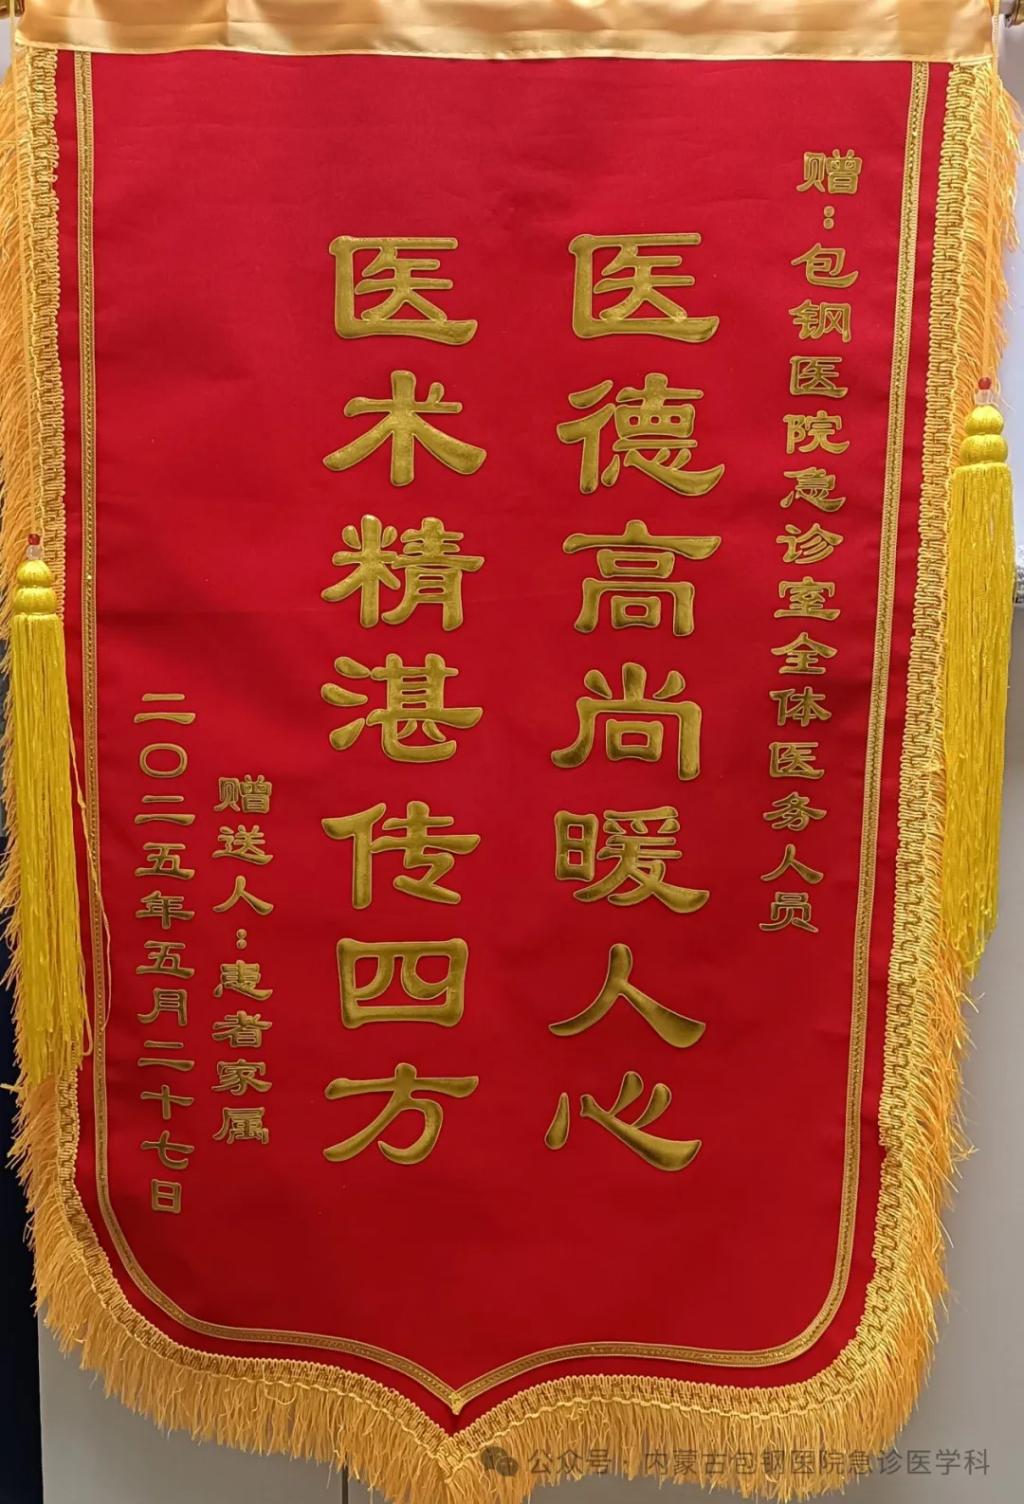 赠：包钢医院急诊室全体医务人员
医德高尚暖人心
医术精湛传四方
赠送人：患者家属
二〇二五年五月二十七日
公众号·内蒙古包钢医院急诊医学科